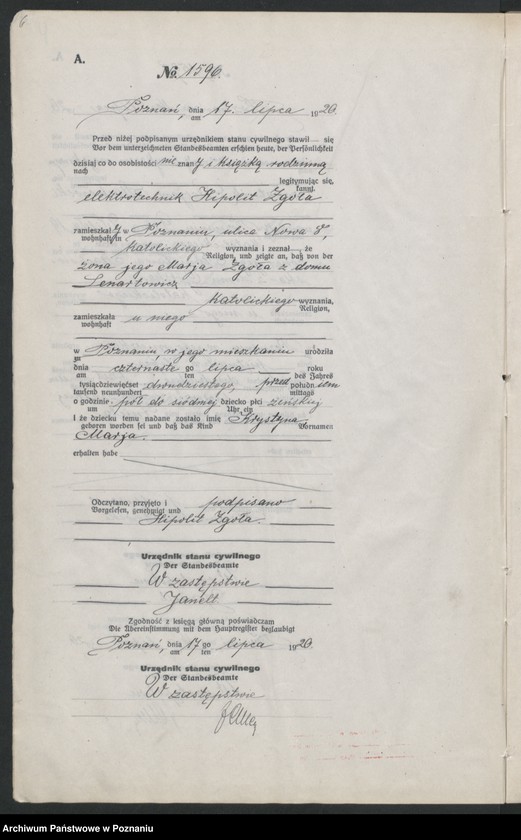 6
A.
No. 1596.
Poznań, dnia 17. lipca 1920.
am
Przed niżej podpisanym urzędnikiem stanu cywilnego stawił się
Vor dem unterzeichneten Standesbeamten erschien heute, der Persönlichkeit
dzisiaj co do osobistości nie znany i książką rodzinną
nach
legitymując się,
kannt,
elektrotechnik Hipolit Zgoła
zamieszkały w Poznaniu, ulica Nowa 8,
wohnhaft in
katolickiego wyznania i zeznał, że
Religion, und zeigte an, daß von der
żona jego Marja Zgoła z domu
Lenartowicz
katolickiego wyznania,
Religion,
zamieszkała u niego
wohnhaft
w Poznaniu w jego mieszkaniu urodziła
zu
dnia czternastego lipca roku
am ten des Jahres
tysiącdziewięćset dwudziestego, przed południem
tausend neunhundert mittags
o godzinie pół do siódmej dziecko płci żeńskiej
um Uhr, ein
i że dziecku temu nadane zostało imię Krystyna
geboren worden sei und daß das Kind Vornamen
Marja.
erhalten habe
Odczytano, przyjęto i podpisano
Vorgelesen, genehmigt und
Hipolit Zgoła.
Urzędnik stanu cywilnego
Der Standesbeamte
W zastępstwie
Janell
Zgodność z księgą główną poświadczam
Die Übereinstimmung mit dem Hauptregister beglaubigt
Poznań, dnia 17 go lipca 1920.
am ten
Urzędnik stanu cywilnego
Der Standesbeamte
W zastępstwie
Archiwum Państwowe w Poznaniu